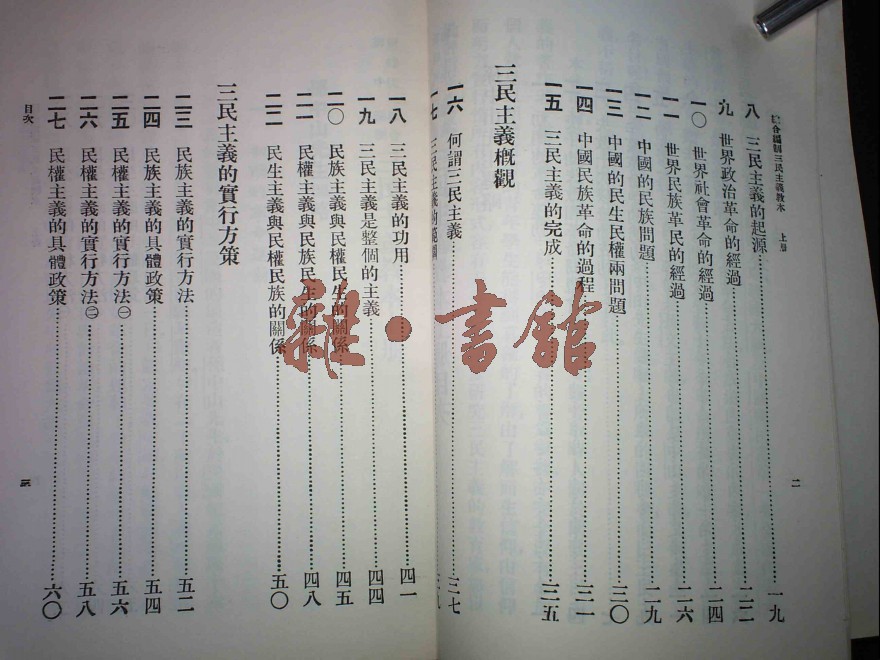 綜合編制三民主義教本 上册
八 三民主義的起源 一九
九 世界政治革命的經過 二二
一〇 世界社會革命的經過 二四
一一 世界民族革民的經過 二六
一二 中國的民族問題 二九
一三 中國的民生民權兩問題 三〇
一四 中國民族革命的過程 三一
一五 三民主義的完成 三五
三民主義概觀
一六 何謂三民主義 三七
一七 三民主義的範圍
一八 三民主義的功用 四一
一九 三民主義是整個的主義 四四
二〇 民族主義與民權民生的關係 四五
二一 民權主義與民族民生的關係 四八
二二 民生主義與民權民族的關係 五〇
三民主義的實行方策
二三 民族主義的實行方法 五二
二四 民族主義的具體政策 五四
二五 民權主義的實行方法㊀ 五六
二六 民權主義的實行方法㊁ 五八
二七 民權主義的具體政策 六〇
目次
二
三
雜·書館